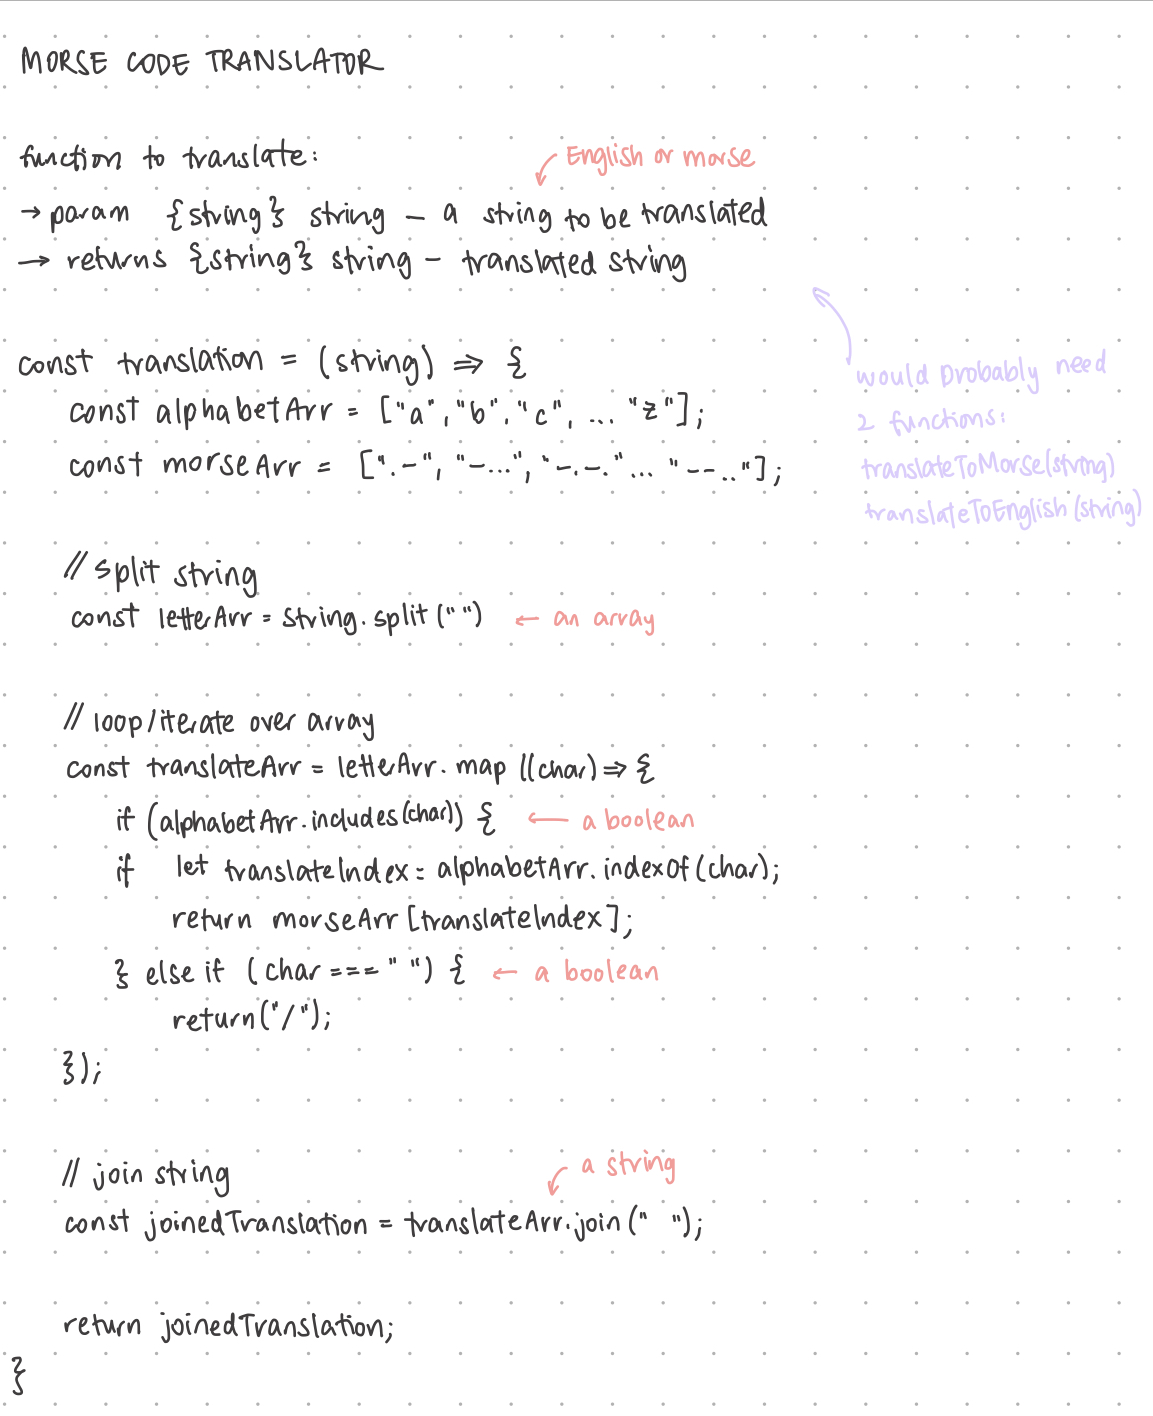 MORSE CODE TRANSLATOR
function to translate:
English or morse
→ param {string} string – a string to be translated
→ returns {string} string – translated string
would probably need
2 functions:
translateToMorse(string)
translateToEnglish(string)
const translation = (string) => {
const alphabetArr = ["a", "b", "c", ... "z"];
const morseArr = [".-", "-...", "-.-." ... "--.."];
// split string
const letterArr = string.split("") ← an array
// loop/iterate over array
const translateArr = letterArr.map((char) => {
if (alphabetArr.includes(char)) { ← a boolean
if let translateIndex = alphabetArr.indexOf(char);
return morseArr[translateIndex];
} else if (char === " ") { ← a boolean
return("/");
});
// join string
a string
const joinedTranslation = translateArr.join(" ");
return joinedTranslation;
}